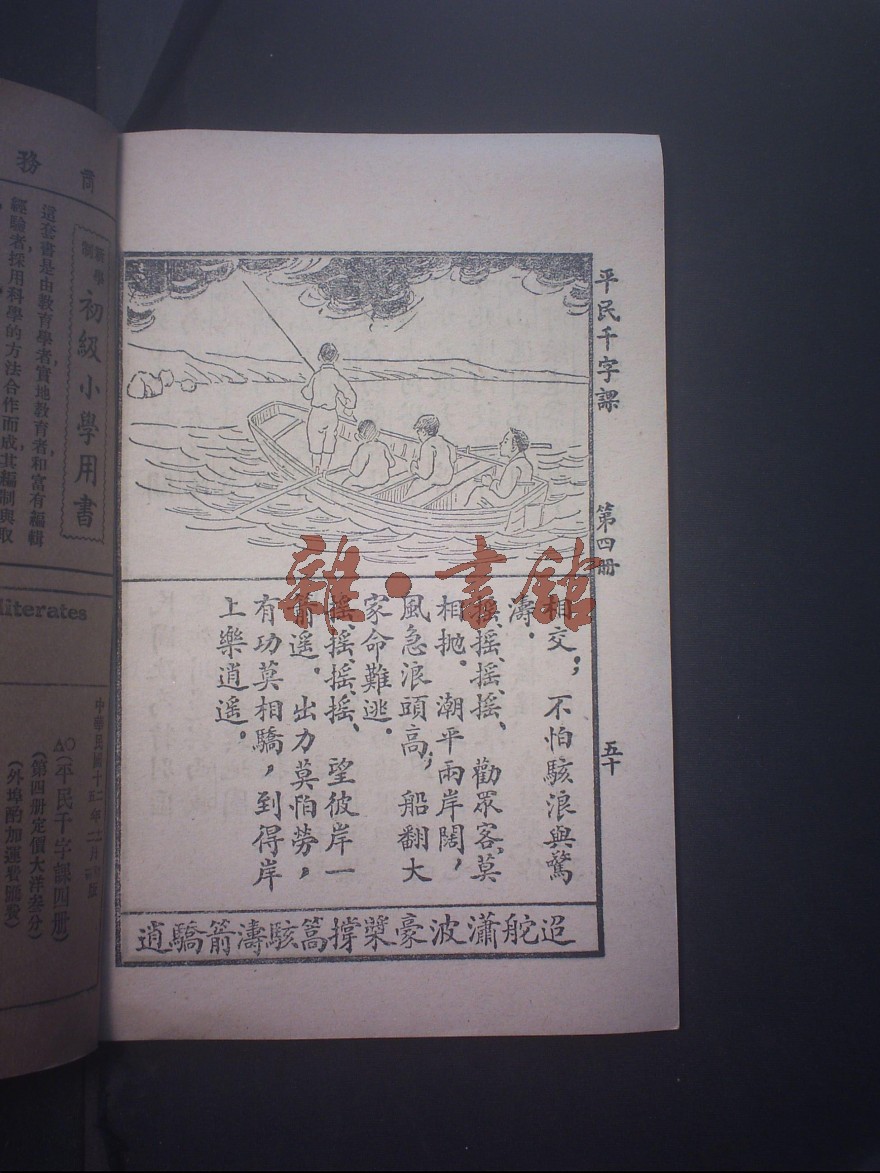 平民千字課
第四冊
五十
相交；不怕駭浪與驚
濤．
搖、搖、搖、搖、勸眾客、莫
相拋．潮平兩岸闊，
風急浪頭高；船翻大
家命難逃．
搖、搖、搖、搖、望彼岸一
箭遥．出力莫怕勞，
有功莫相驕，到得岸
上樂逍遥。
迢舵瀟波豪槳撐篙駭濤箭驕逍
雜·書館
務
初級小學用書
這套書是由教育學者，實地教育者和富有編輯
經驗者採用科學的方法合作而成其編制與取
literates
中華民國十二年二月
△○（平民千字課四册）
（第四册定價大洋叁分）
（外埠酌加運費匯費）